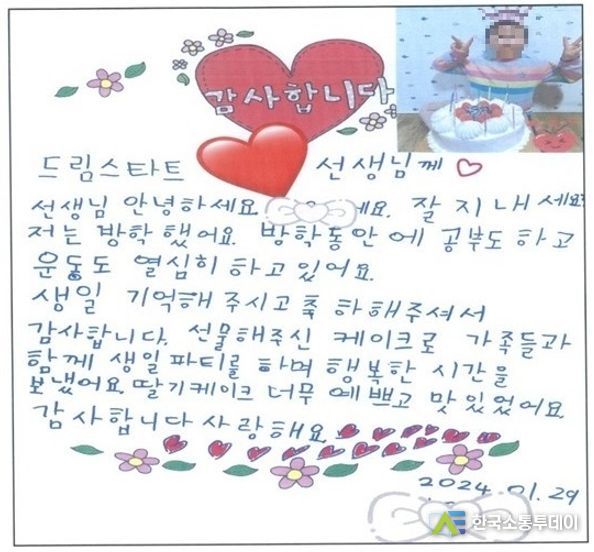 감사합니다
드림스타트 선생님께
선생님 안녕하세요. 예요. 잘 지내세요?
저는 방학 했어요. 방학동안에 공부도 하고
운동도 열심히 하고 있어요.
생일 기억해 주시고 축하해주셔서
감사합니다. 선물해주신 케이크로 가족들과
함께 생일파티를 하며 행복한 시간을
보냈어요. 딸기케이크 너무 예쁘고 맛있었어요.
감사합니다 사랑해요
2024. 01. 29
한국소통투데이